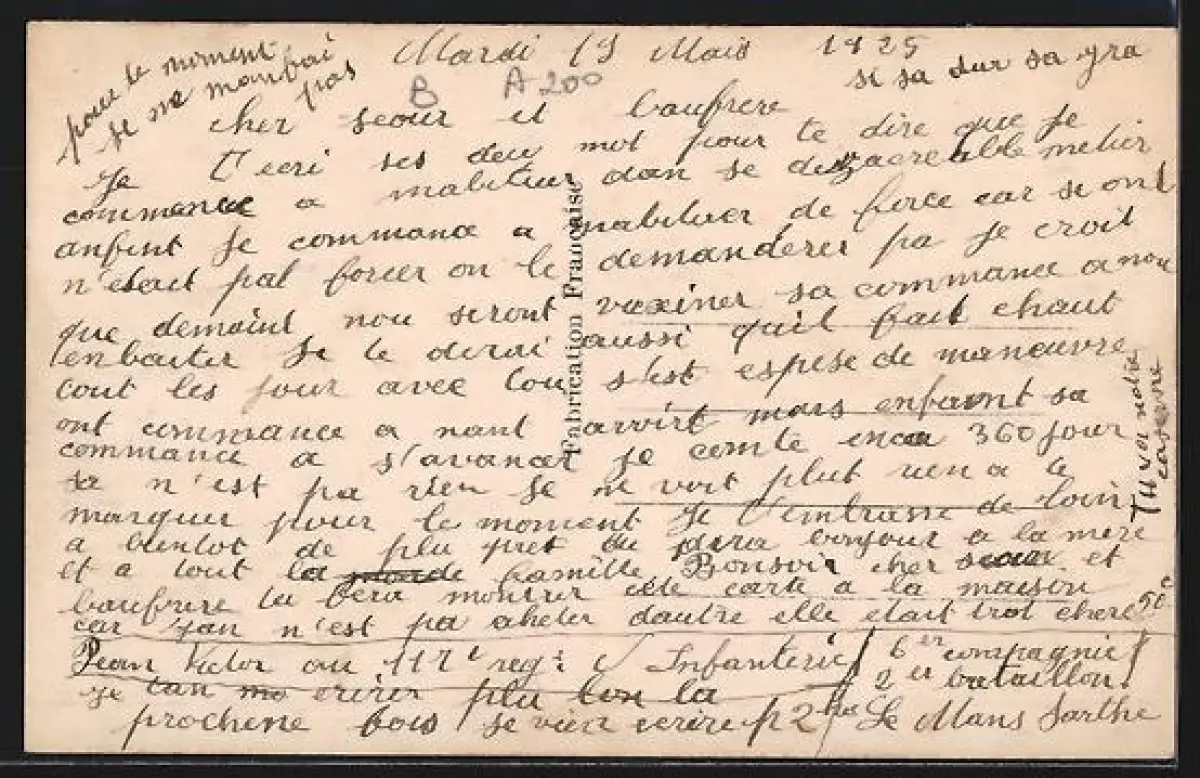 Mardi 19 Mais 1925
pour le moment
je ne manbrai
pas
si sa dur sa yra
B A 200
cher seour et baufrere
Je t'ecri ses deu mot pour te dire que je
commence a mabituer dan se dezacreable metier
anfint je commance a mabituer de force car si ont
n'etait pat forcer on le demanderer pa je croit
que demaint nou seront vaxiner sa commance a nou
enbaiter je te dirai aussi quil fait chaut
tout les jour avec tou s'est espese de manœuvre
ont commance a nant avoirt mars enfaint sa
commance a s'avancer je comte encor 360 jour
sa n'est pa rien je ne voit plut rien a te
marquer pour le moment je t'embrasse de loin
a bientot de plu pret tu dira bonjour a la mere
et a tout la famille Bonsoir cher seour et
baufrere tu fera montrer cete carte a la maison
car jan n'est pa aheter dautre elle etait trot chere 50c
Jean Victor au 117e reg: d'Infanterie 6er compagnie
je tan ecrirer plu lon la 2er bataillon
prochene fois je vien ecrire Le Mans Sarthe
caserne
Fabrication Française